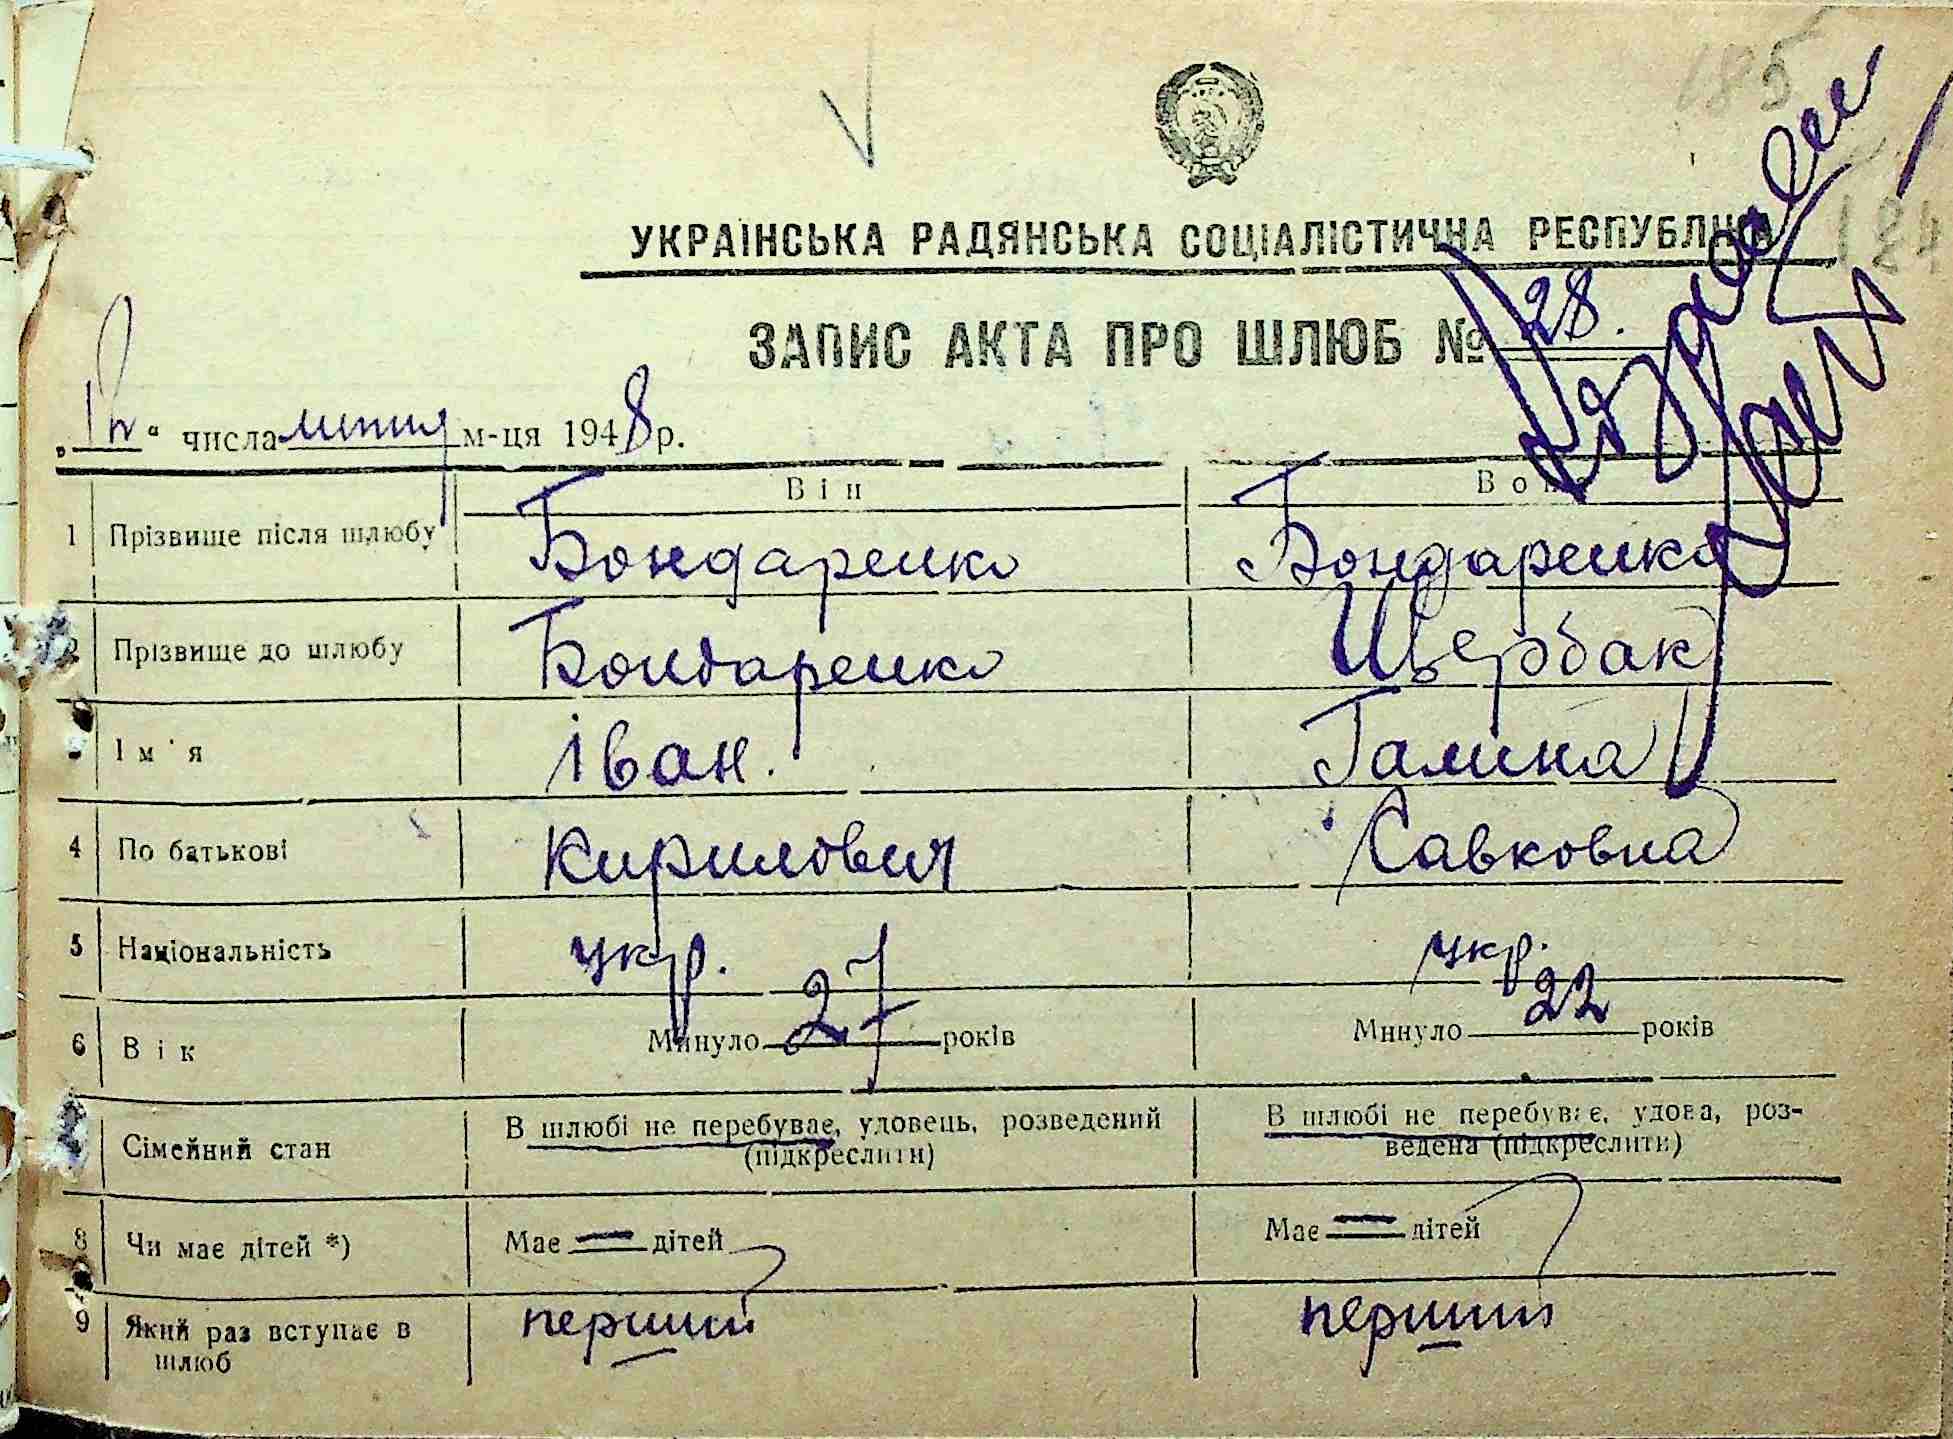 185
184
УКРАЇНСЬКА РАДЯНСЬКА СОЦІАЛІСТИЧНА РЕСПУБЛІКА
ЗАПИС АКТА ПРО ШЛЮБ № 28.
числа липня м-ця 1948 р.
Він Вона
1 Прізвище після шлюбу Бондаренко Бондаренко
2 Прізвище до шлюбу Бондаренко Щербак
Ім'я Іван. Галина
4 По батькові Кирилович Савковна
5 Національність укр. укр.
6 Вік Минуло 27 років Минуло 22 років
Сімейний стан В шлюбі не перебуває, удовець, розведений (підкреслити) В шлюбі не перебуває, удова, роз-
ведена (підкреслити)
8 Чи має дітей *) Має — дітей Має — дітей
9 Який раз вступає в перший перший
шлюб